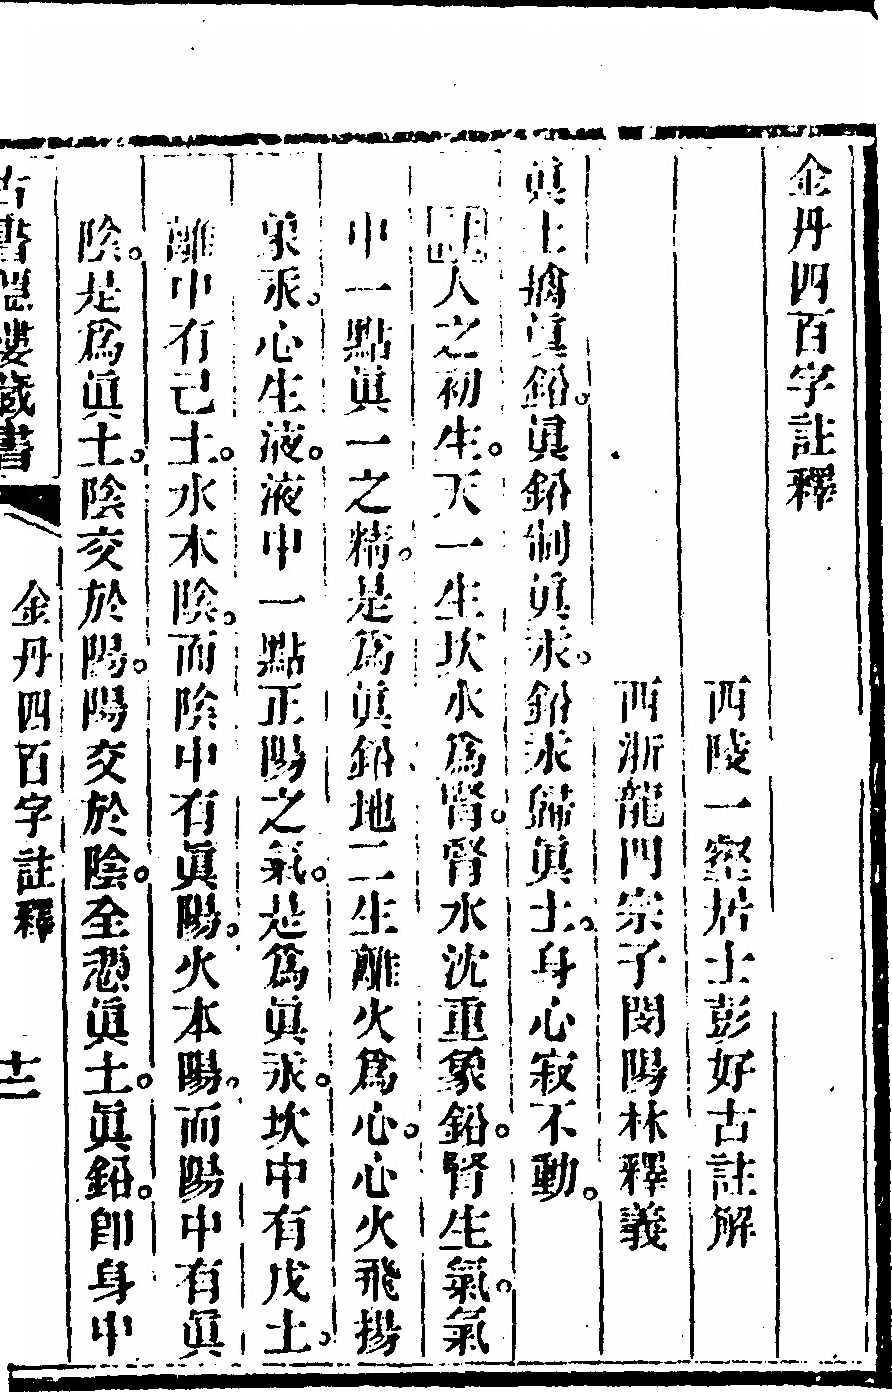 金丹四百字註釋
西陵一壑居士彭好古註解
西浙龍門宗子閔陽林釋義
眞土擒眞鉛。眞鉛制眞汞。鉛汞歸眞土。身心寂不動。
註人之初生。天一生坎水爲腎。腎水沈重象鉛。腎生氣。氣
中一點眞一之精。是爲眞鉛地二生離火爲心。心火飛揚
象汞。心生液。液中一點正陽之氣。是爲眞汞。坎中有戊土。
離中有己土。水本陰。而陰中有眞陽。火本陽。而陽中有眞
陰。是爲眞土。陰交於陽。陽交於陰。全憑眞土。眞鉛。卽身中
古書隱樓藏書
金丹四百字註釋
十二